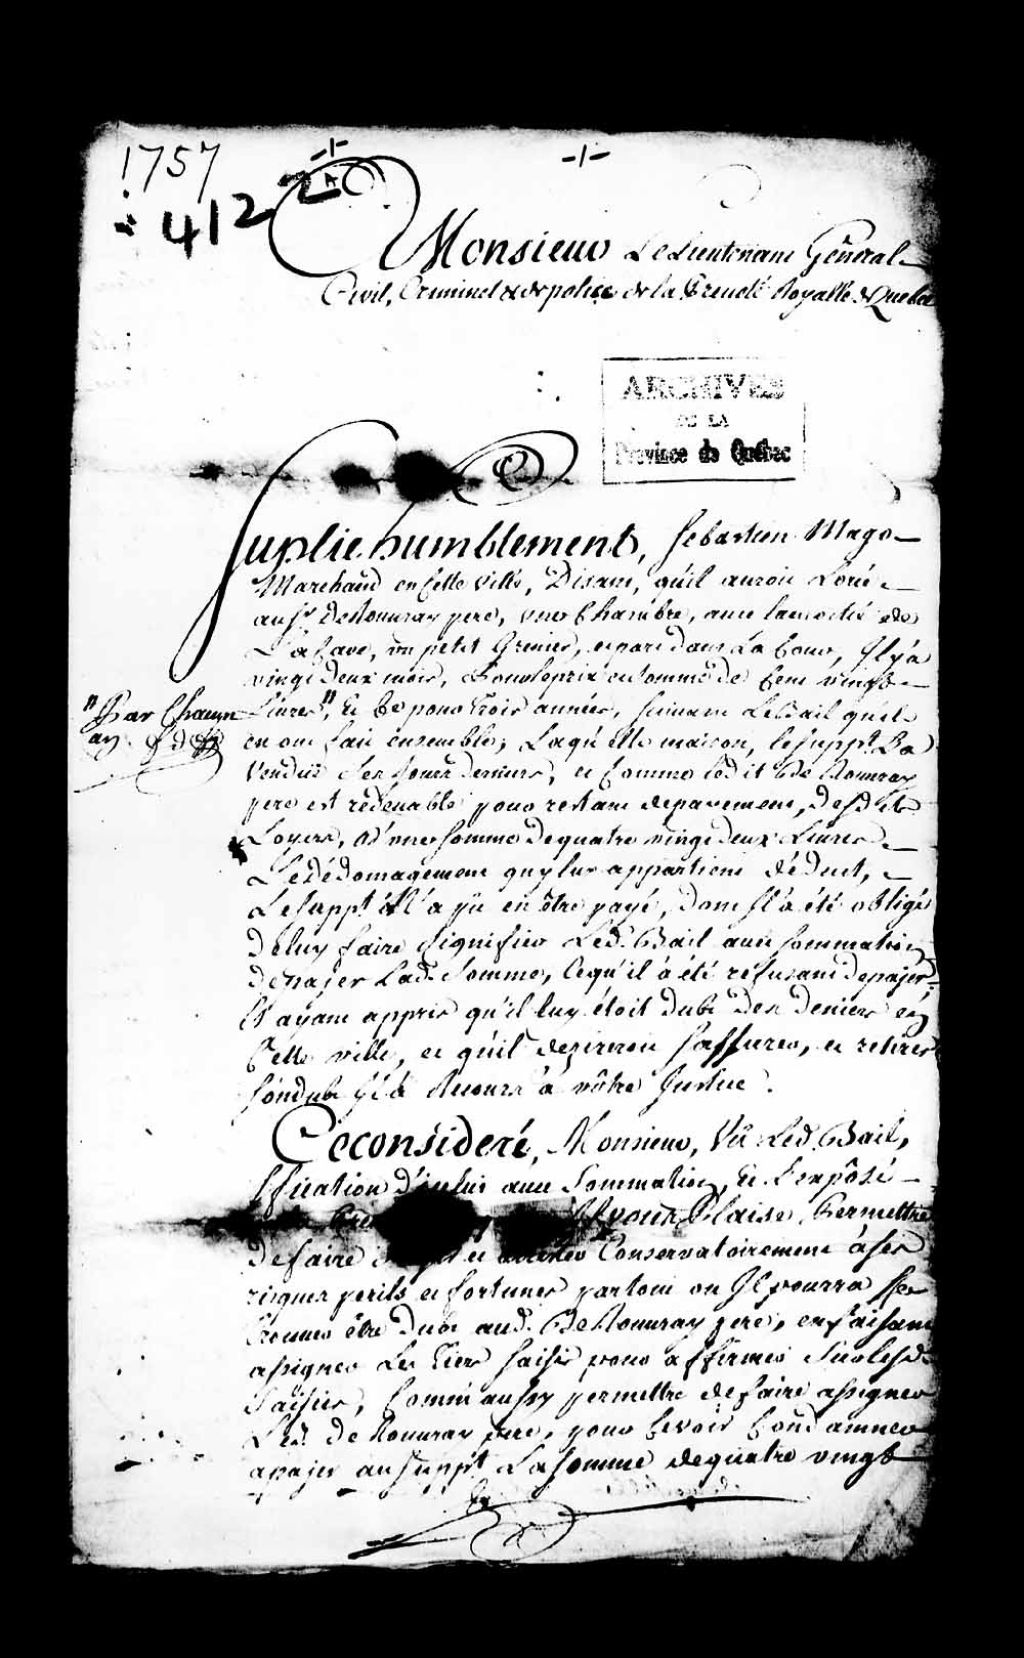 1757
412
Monsieur Le Lieutenant Géneral
Civil, Criminel & de police de la Prevoté Royalle de Quebec
ARCHIVES
DE LA
Province de Québec
Suplie humblement, Sebastien Mago
Marchand en Cette Ville, Disant, qu'il auroit Loüé
au Sr. De Nouuray pere, une Chambre, auec la moitié de
La Caue, un petit Grenier, et part dans La Cour, Il y a
vingt Deux mois, pour le prix et somme de Cent vingt
Liures", Et Ce pour trois années, suiuant Le Bail qu'ils
"Par Chacun
an
en ont fait ensemble; Laquelle maison, le supt. La
Vendüe Ces Jours derniers, et Comme ledit De Nouuray
pere est redeuable pour restant de payement, desdits
Loyers, d'une somme de quatre vingt deux Liures
Le dédomagement quy luy appartient déduit,
Le supt. n'a pu en être payé, dont Il a été obligé
de luy faire signifier Led. Bail auec sommation
de payer Lad. Somme, Ce qu'il a été refusant de payer;
Et ayant appris qu'il luy étoit dub des deniers en
Cette ville, et qu'il desireroit s'assurer, et retirer
son dub Il a Recours à vôtre Justice.
Ce consideré, Monsieur, Vû Led. Bail,
signification d'iceluy auec Sommation, Et L'exposé
vous Plaise, Permettre
de faire et Conservatoirement à ses
risques perils et fortunes partout où Il pourra se
trouuer être dub aud. De Nouuray pere, en faisant
assigner Les tiers saisis pour affirmer sur lesd.
saisies, Comme aussy permettre de faire assigner
Led. De Nouuray pere, pour se voir Condamner
a payer au supt. La somme de quatre vingt